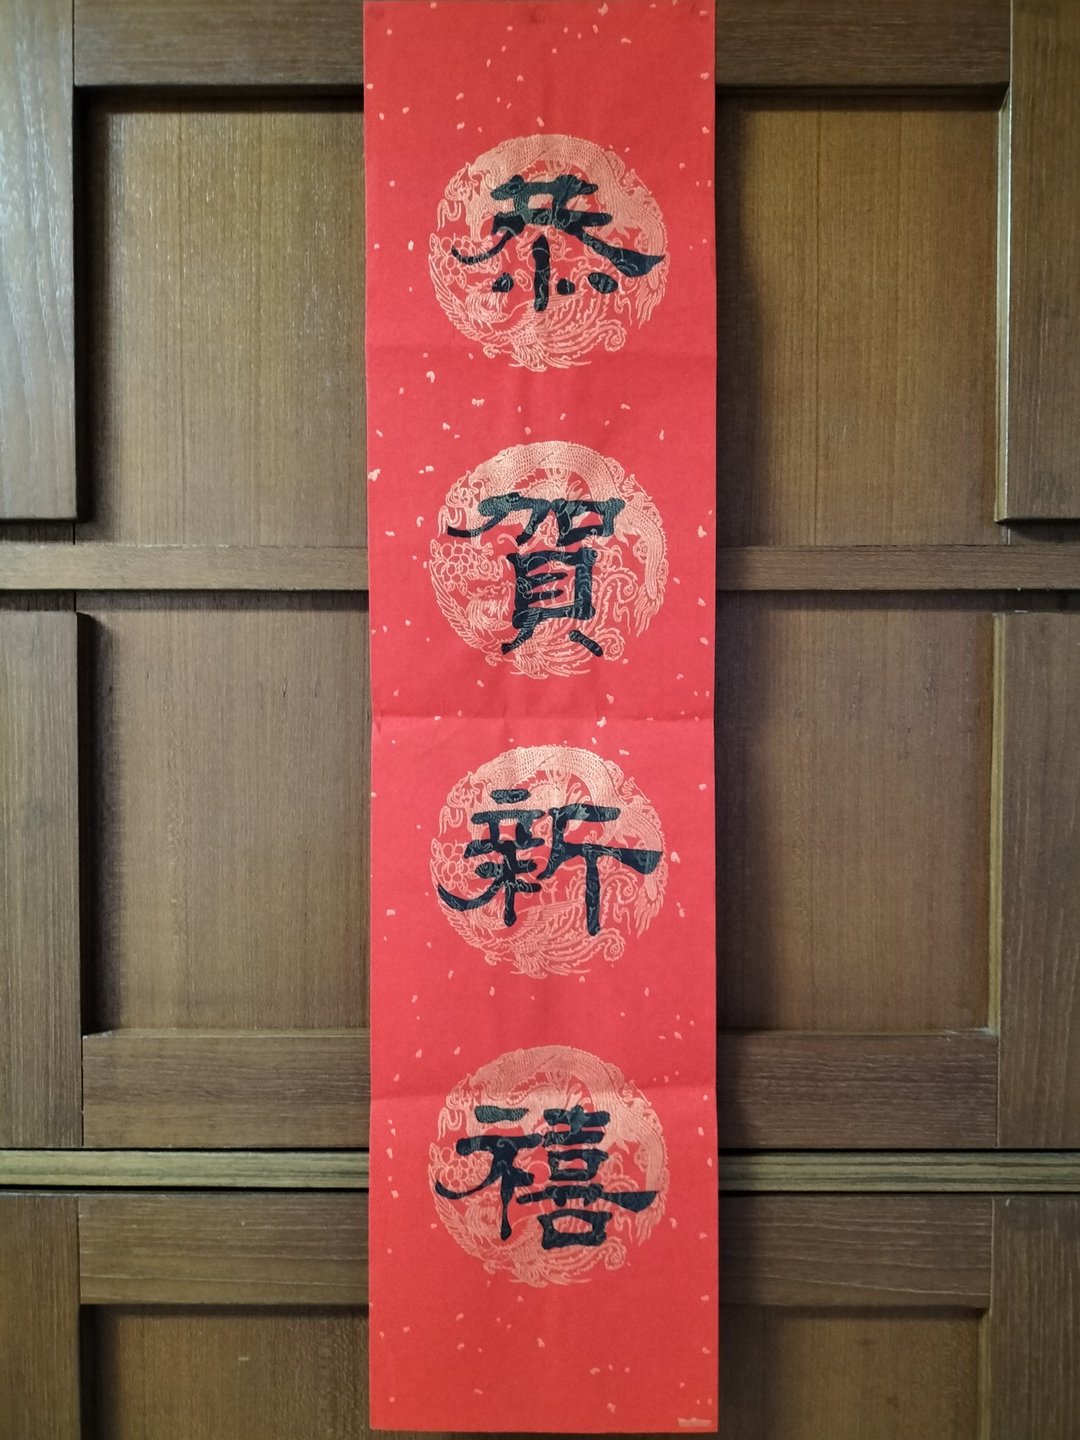 恭賀新禧